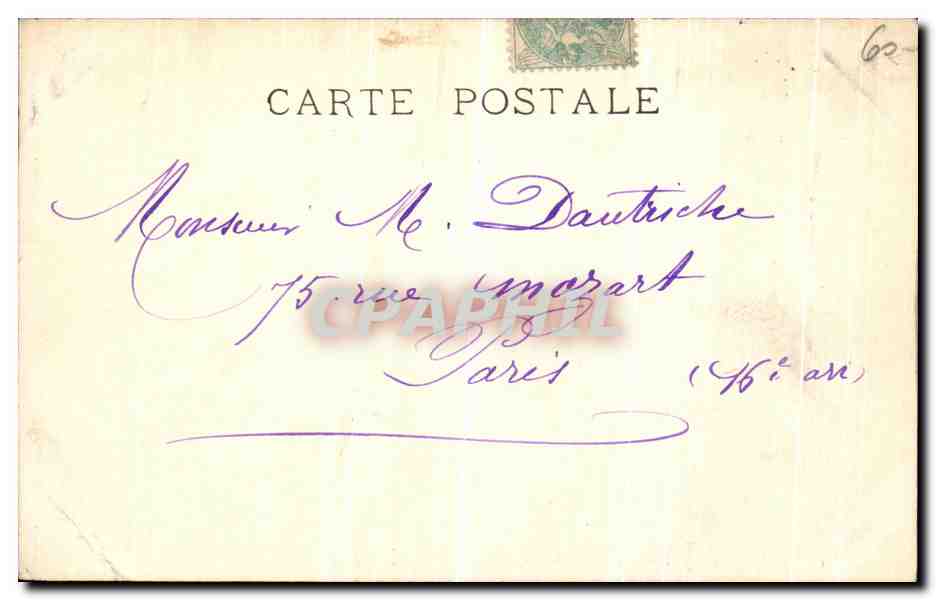 60-
CARTE POSTALE
Monsieur M. Dautriche
75 rue Mozart
CPAPHIL
Paris (16e arr)